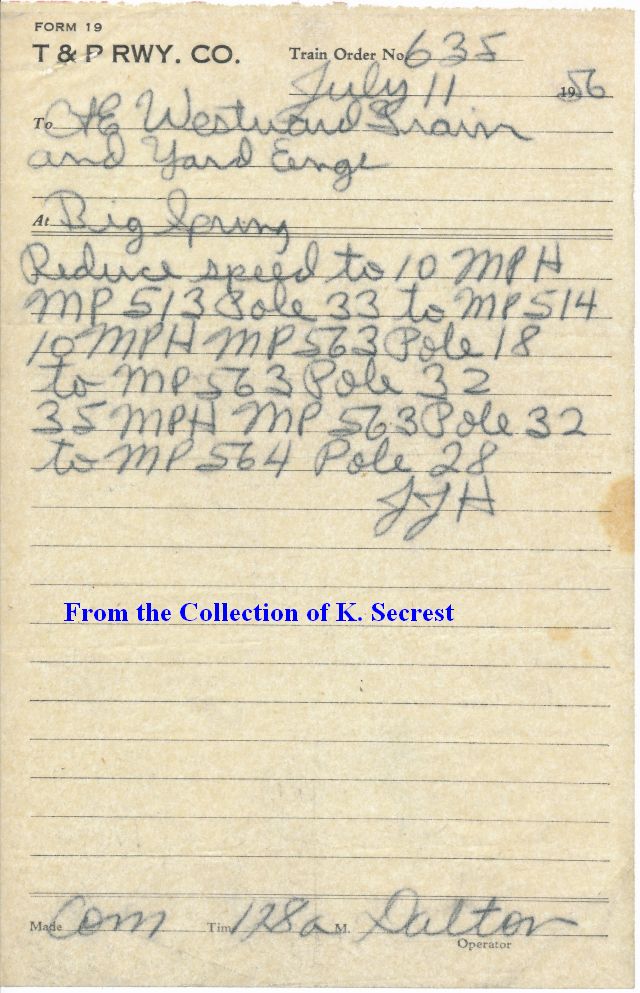 FORM 19
T & P RWY. CO. Train Order No 635
July 11 1956
To C&E Westward Train
and Yard Engs
At Big Spring
Reduce speed to 10 MPH
MP 513 Pole 33 to MP 514
10 MPH MP 563 Pole 18
to MP 563 Pole 32
35 MPH MP 563 Pole 32
to MP 564 Pole 28
JJH
From the Collection of K. Secrest
Made Com Time 128a M. Dalton
Operator